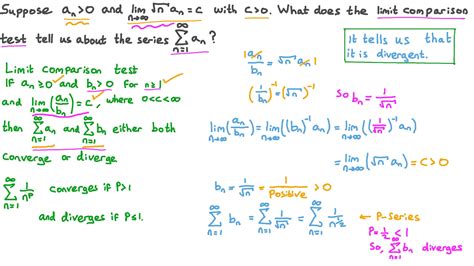 Suppose aₙ>0 and lim n→∞ √n aₙ = c with c>0. What does the limit comparison
test tell us about the series ∞Σn=1 aₙ ?
It tells us that
it is divergent.
Limit comparison test
If aₙ≥0 and bₙ>0 for n≥1
and lim n→∞ (aₙ/bₙ) = c, where 0<c<∞
then ∞Σn=1 aₙ and ∞Σn=1 bₙ either both
Converge or diverge
∞Σn=1 1/nᴾ converges if P>1
and diverges if P≤1.
1aₙ/bₙ = √n aₙ
(1/bₙ)⁻¹ = (√n)⁻¹
So bₙ = 1/√n
lim n→∞ (aₙ/bₙ) = lim n→∞ ((bₙ)⁻¹ aₙ) = lim n→∞ ((1/√n)⁻¹ aₙ)
= lim n→∞ (√n aₙ) = c > 0
bₙ = 1/√n = 1/Positive > 0
∞Σn=1 bₙ = ∞Σn=1 1/√n = ∞Σn=1 1/n^½ ← P-Series
P=½ < 1
So, ∞Σn=1 bₙ diverges